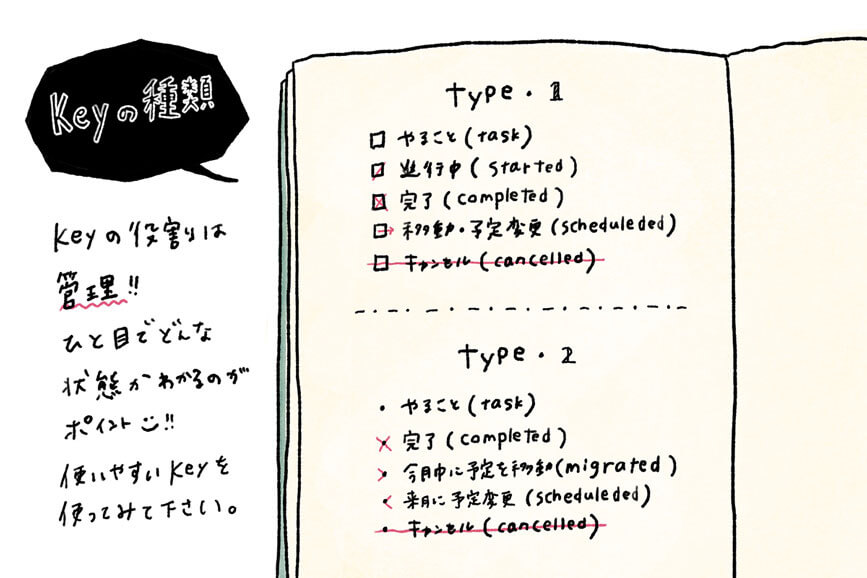 Keyの種類
Keyの役割は
管理!!
ひと目でどんな
状態かわかるのが
ポイント!!
使いやすいKeyを
使ってみて下さい。
type・1
やること(task)
進行中(started)
完了(completed)
移動・予定変更(scheduleded)
キャンセル(cancelled)
type・2
・やること(task)
完了(completed)
今月中に予定を移動(migrated)
来月に予定変更(scheduleded)
・キャンセル(cancelled)